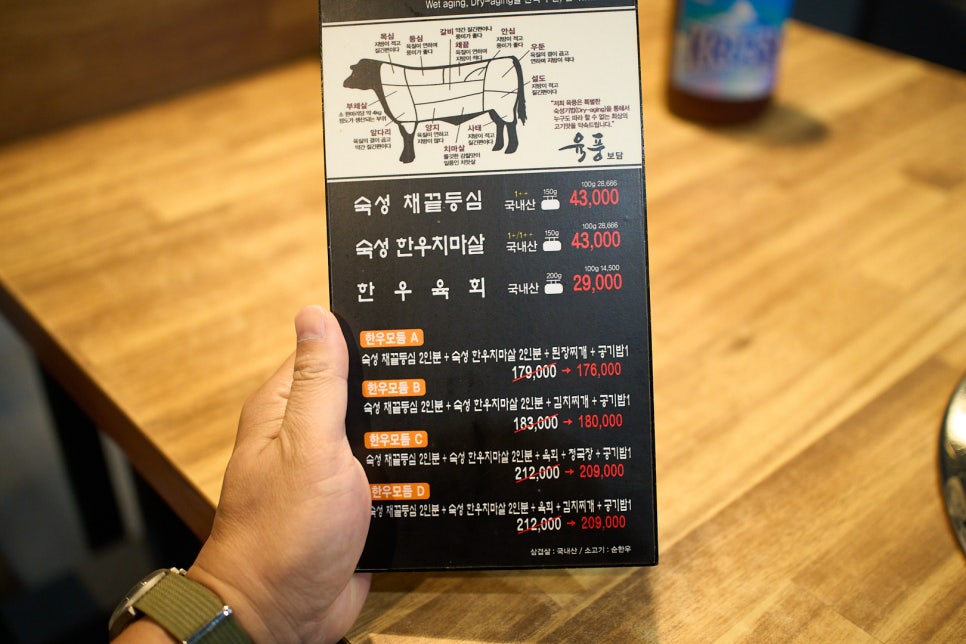 Wet aging, Dry-aging을
목심
지방이 적고
질긴편이다
등심
육질이 연하며
풍미가 좋다
갈비 약간 질긴편이나
풍미가 좋다
채끝
육질이 연하며
지방이 적다
안심
지방이 적고
풍미가 좋다
우둔
육질의 결이 곱고
연하며 지방이 적다
설도
지방이 적고
질긴편이다
부채살
소 한마리당 약 4kg
정도가 생산되는 부위
앞다리
육질의 결이 곱고
약간 질긴편이다
양지
육질이 연하고
지방이 많다
치마살
쫄깃한 감칠맛이
일품인 치맛살
사태
지방이 적고
질긴편이다
"저희 육풍은 특별한
숙성기법(Dry-aging)을 통해서
누구도 따라 할 수 없는 최상의
고기맛을 약속드립니다."
육풍 보담
숙성 채끝등심 1++ 국내산 150g 100g 28,666 43,000
숙성 한우치마살 1+/1++ 국내산 150g 100g 28,666 43,000
한우육회 국내산 200g 100g 14,500 29,000
한우모듬 A
숙성 채끝등심 2인분 + 숙성 한우치마살 2인분 + 된장찌개 + 공기밥1
179,000 → 176,000
한우모듬 B
숙성 채끝등심 2인분 + 숙성 한우치마살 2인분 + 김치찌개 + 공기밥1
183,000 → 180,000
한우모듬 C
숙성 채끝등심 2인분 + 숙성 한우치마살 2인분 + 육회 + 청국장 + 공기밥1
212,000 → 209,000
한우모듬 D
숙성 채끝등심 2인분 + 숙성 한우치마살 2인분 + 육회 + 김치찌개 + 공기밥1
212,000 → 209,000
삼겹살 : 국내산 / 소고기 : 순한우